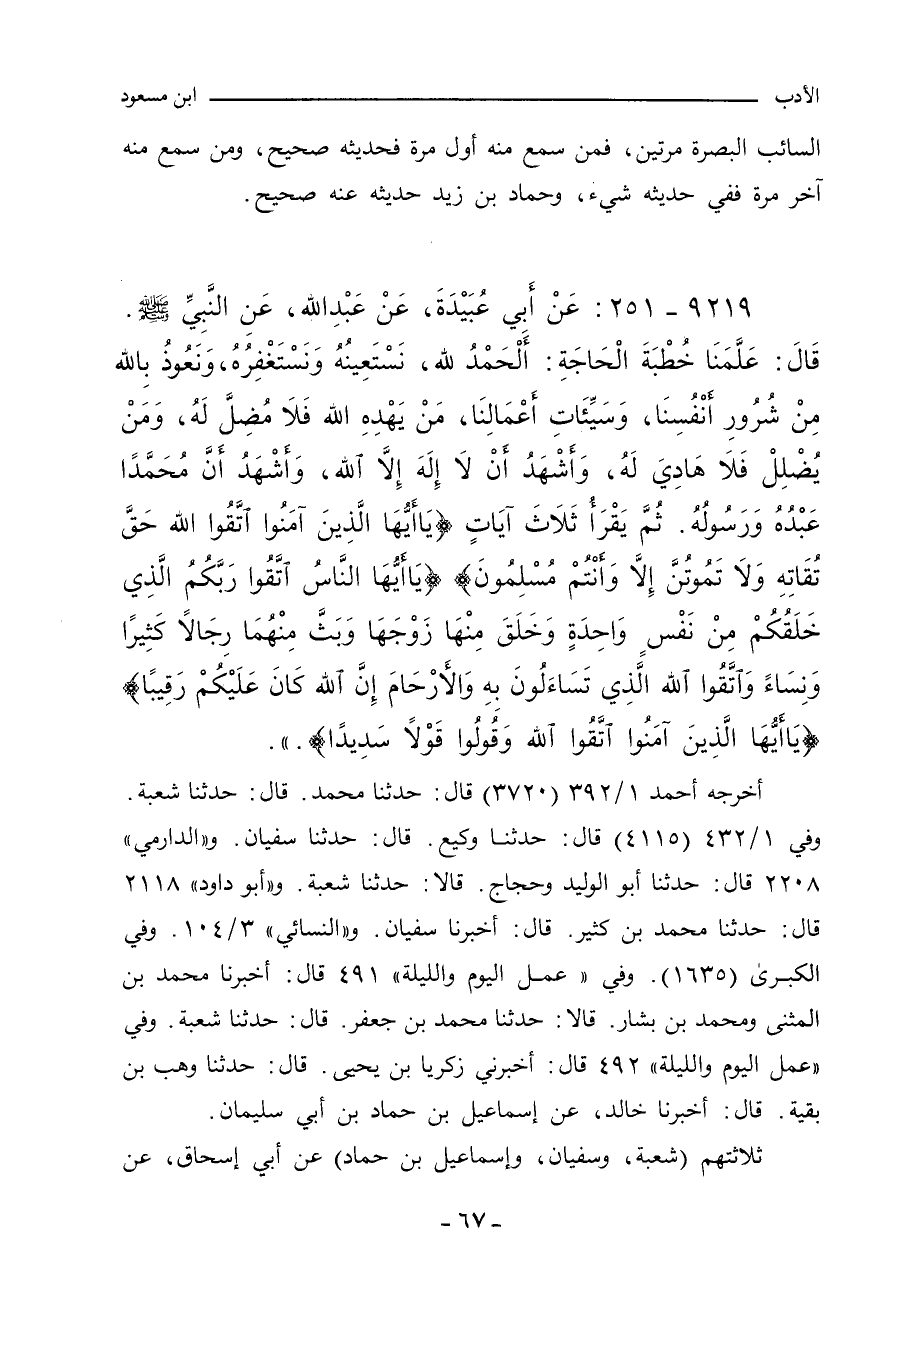 الأدب ــــــــــــــــــــ ابن مسعود
السائب البصرة مرتين، فمن سمع منه أول مرة فحديثه صحيح، ومن سمع منه
آخر مرة ففي حديثه شيء، وحماد بن زيد حديثه عنه صحيح.
٩٢١٩ - ٢٥١: عَنْ أَبِي عُبَيْدَةَ، عَنْ عَبْدِالله، عَنِ النَّبِيِّ ﷺ.
قَالَ: عَلَّمَنَا خُطْبَةَ الْحَاجَةِ: أَلْحَمْدُ لله، نَسْتَعِينُهُ وَنَسْتَغْفِرُهُ، وَنَعُوذُ بِالله
مِنْ شُرُورِ أَنْفُسِنَا، وَسَيِّئَاتِ أَعْمَالِنَا، مَنْ يَهْدِهِ الله فَلَا مُضِلَّ لَهُ، وَمَنْ
يُضْلِلْ فَلَا هَادِيَ لَهُ، وَأَشْهَدُ أَنْ لَا إِلَهَ إِلَّا ٱلله، وَأَشْهَدُ أَنَّ مُحَمَّدًا
عَبْدُهُ وَرَسُولُهُ. ثُمَّ يَقْرَأُ ثَلَاثَ آيَاتٍ ﴿يَاأَيُّهَا الَّذِينَ آمَنُوا ٱتَّقُوا الله حَقَّ
تُقَاتِهِ وَلَا تَمُوتُنَّ إِلَّا وَأَنْتُمْ مُسْلِمُونَ﴾ ﴿يَاأَيُّهَا النَّاسُ ٱتَّقُوا رَبَّكُمُ الَّذِي
خَلَقَكُمْ مِنْ نَفْسٍ وَاحِدَةٍ وَخَلَقَ مِنْهَا زَوْجَهَا وَبَثَّ مِنْهُمَا رِجَالًا كَثِيرًا
وَنِسَاءً وَٱتَّقُوا ٱلله الَّذِي تَسَاءَلُونَ بِهِ وَالْأَرْحَامَ إِنَّ ٱلله كَانَ عَلَيْكُمْ رَقِيبًا﴾
﴿يَاأَيُّهَا الَّذِينَ آمَنُوا ٱتَّقُوا ٱلله وَقُولُوا قَوْلًا سَدِيدًا﴾.».
أخرجه أحمد ٣٩٢/١ (٣٧٢٠) قال: حدثنا محمد. قال: حدثنا شعبة.
وفي ٤٣٢/١ (٤١١٥) قال: حدثنا وكيع. قال: حدثنا سفيان. و«الدارمي»
٢٢٠٨ قال: حدثنا أبو الوليد وحجاج. قالا: حدثنا شعبة. و«أبو داود» ٢١١٨
قال: حدثنا محمد بن كثير. قال: أخبرنا سفيان. و«النسائي» ١٠٤/٣. وفي
الكبرىٰ (١٦٣٥). وفي « عمل اليوم والليلة» ٤٩١ قال: أخبرنا محمد بن
المثنى ومحمد بن بشار. قالا: حدثنا محمد بن جعفر. قال: حدثنا شعبة. وفي
«عمل اليوم والليلة» ٤٩٢ قال: أخبرني زكريا بن يحيى. قال: حدثنا وهب بن
بقية. قال: أخبرنا خالد، عن إسماعيل بن حماد بن أبي سليمان.
ثلاثتهم (شعبة، وسفيان، وإسماعيل بن حماد) عن أبي إسحاق، عن
- ٦٧ -